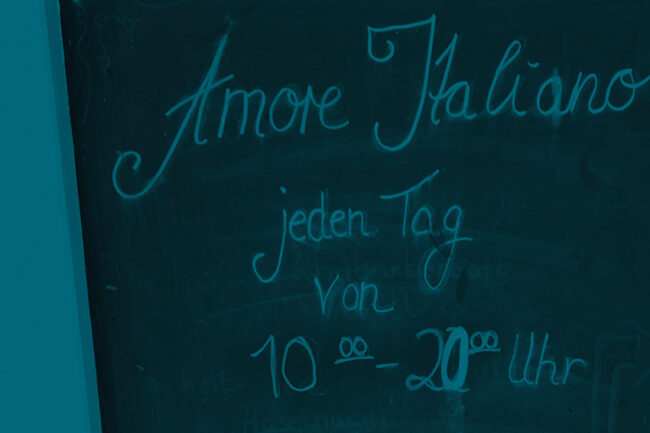 Amore Italiano
jeden Tag
von
10⁰⁰ - 20⁰⁰ Uhr